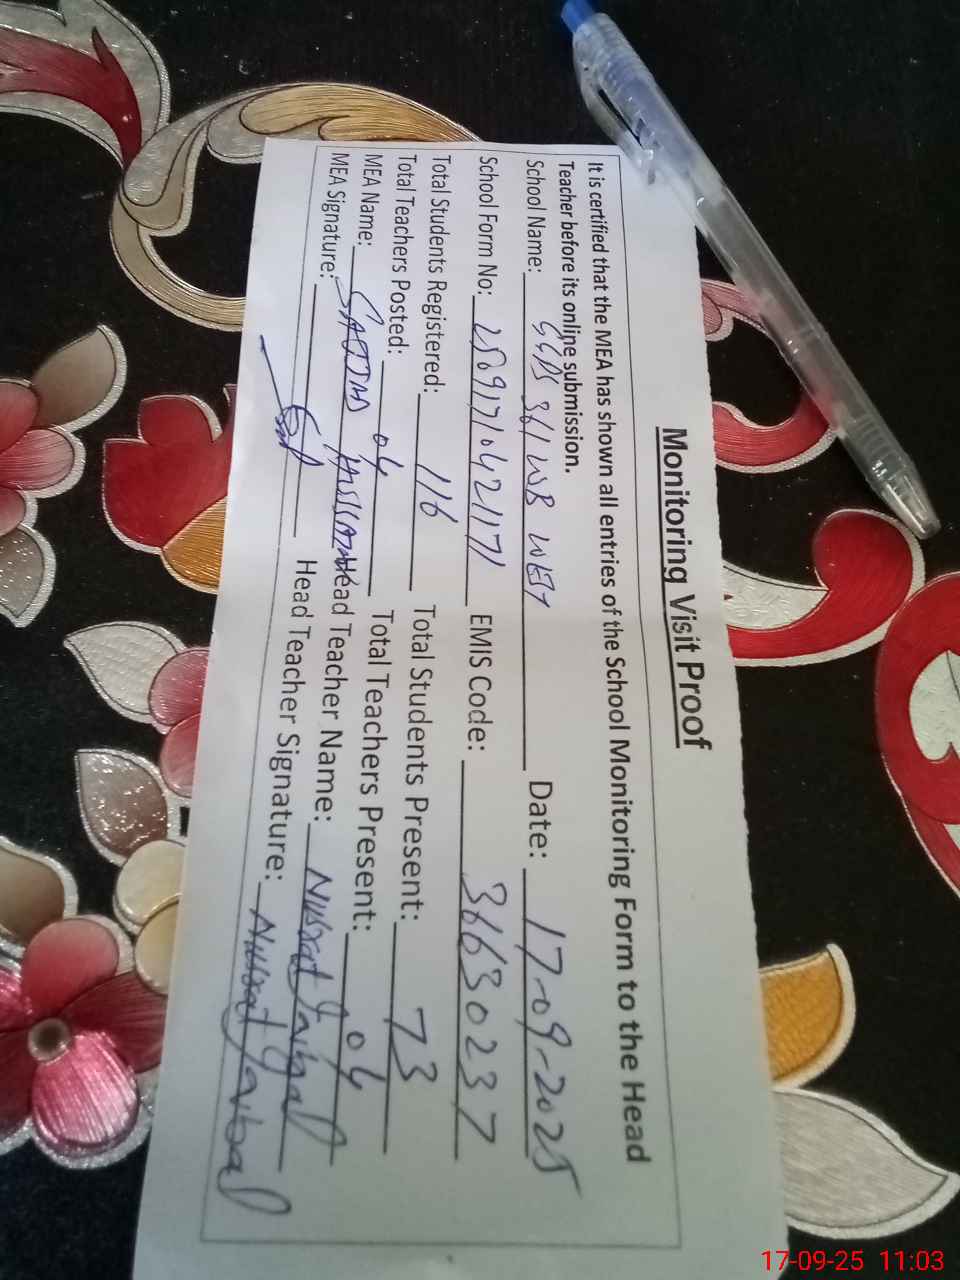 Monitoring Visit Proof
It is certified that the MEA has shown all entries of the School Monitoring Form to the Head
Teacher before its online submission.
School Name: GGPS 361 WB WEST Date: 17-09-2025
School Form No: 2509171042117 EMIS Code: 36630237
Total Students Registered: 116 Total Students Present: 73
Total Teachers Posted: 04 Total Teachers Present: 04
MEA Name: SAJJAD HUSSAIN Head Teacher Name: Nusrat Iqbal
MEA Signature: Head Teacher Signature: Nusrat Iqbal
17-09-25 11:03